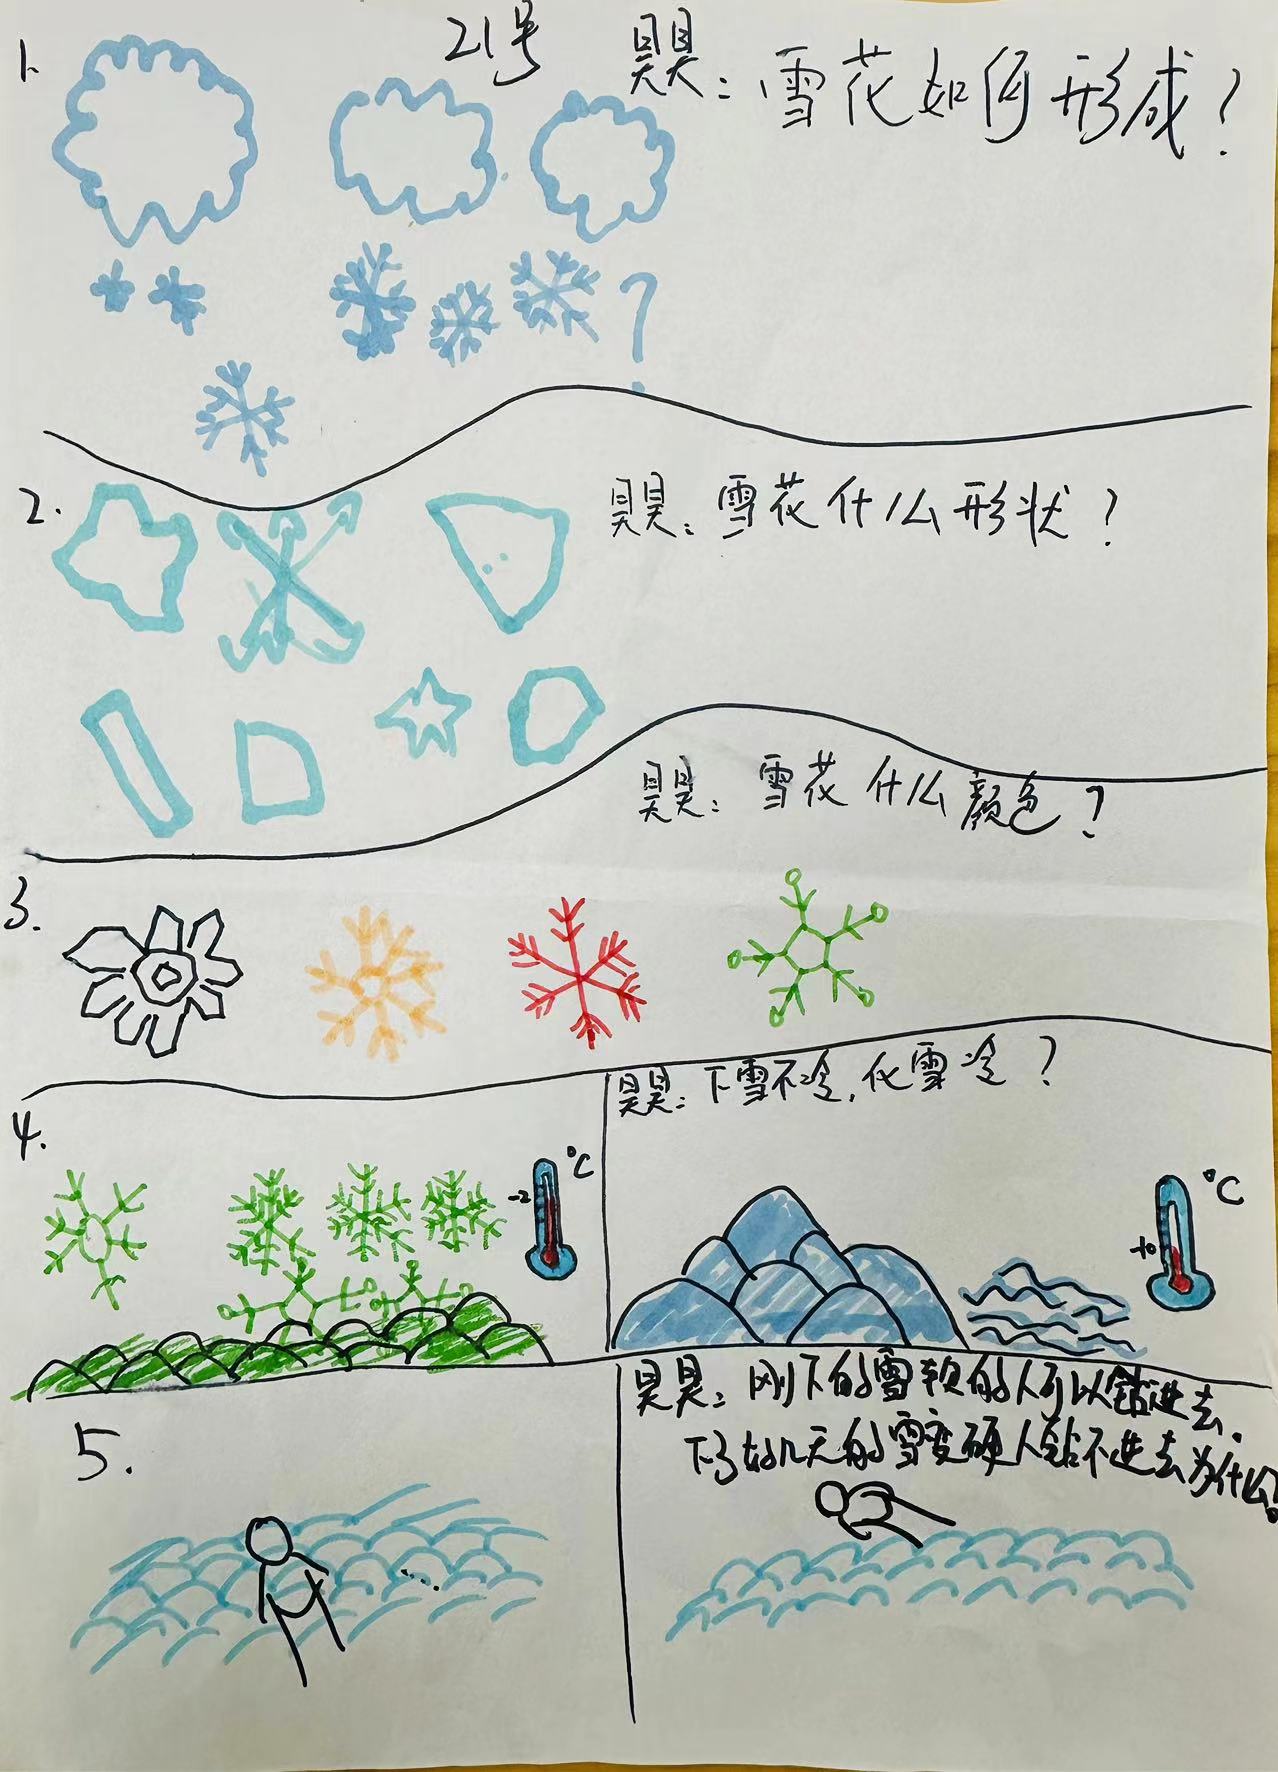 21号
1. 昊昊：雪花如何形成？
?
2. 昊昊：雪花什么形状？
昊昊：雪花什么颜色？
3.
昊昊：下雪不冷，化雪冷？
4.
°C
-2
°C
+0
昊昊：刚下的雪软的人可以钻进去，
下了好几天的雪变硬人钻不进去为什么？
5.